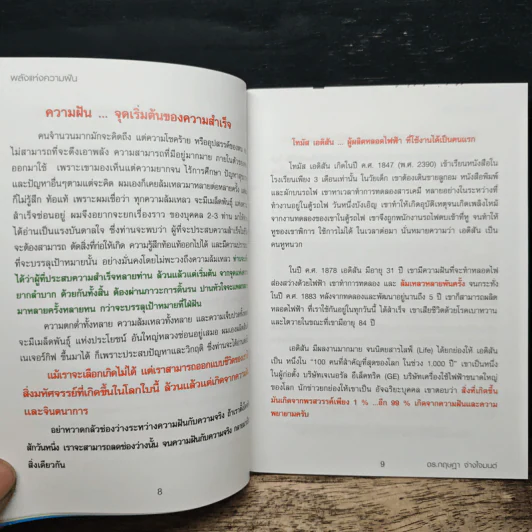 พลังแห่งความฝัน
ความฝัน ... จุดเริ่มต้นของความสำเร็จ
คนจำนวนมากมักจะคิดถึง แต่ความโชคร้าย หรืออุปสรรคของตน
ไม่สามารถที่จะดึงเอาพลัง ความสามารถที่มีอยู่มากมาย ภายในตัว
ออกมาใช้ เพราะเขามองเห็นแต่ความยากจน ไร้การศึกษา ปัญหา
และปัญหาอื่นๆตามแต่จะคิด ผมเองก็เคยล้มเหลวมาหลายต่อหลายครั้ง
ก็ไม่รู้สึก ท้อแท้ เพราะเชื่อว่า ทุกความล้มเหลว จะมีเมล็ดพันธุ์
สำเร็จซ่อนอยู่ ผมจึงอยากจะยกเรื่องราว ของบุคคล 2-3 ท่าน
ได้อ่านเป็นแรงบันดาลใจ ซึ่งท่านจะพบว่า ผู้ที่ประสบความสำเร็จ
จะต้องสามารถ ตัดสิ่งที่ก่อให้เกิด ความรู้สึกท้อแท้ออกไปได้ และมีความ
ที่จะบรรลุเป้าหมายนั้น อย่างมั่นคงโดยไม่พะวงถึงความล้มเหลว
ได้ว่าผู้ที่ประสบความสำเร็จหลายท่าน ล้วนแล้วแต่เริ่มต้น จากจุดแห่ง
ยากลำบาก ด้วยกันทั้งสิ้น ต้องผ่านภาวะการดิ้นรน ปานหัวใจจะ
มาหลายครั้งหลายหน กว่าจะบรรลุเป้าหมายที่ใฝ่ฝัน
ความตกต่ำทั้งหลาย ความล้มเหลวทั้งหลาย และความเจ็บปวด
จะมีเมล็ดพันธุ์ แห่งประโยชน์ อันใหญ่หลวงซ่อนอยู่เสมอ ผมเอง
เนเจอร์กิฟ ขึ้นมาได้ ก็เพราะประสบปัญหาและวิกฤติ ซึ่งท่านจะได้
แม้เราจะเลือกเกิดไม่ได้ แต่เราสามารถออกแบบชีวิตของ
สิ่งมหัศจรรย์ที่เกิดขึ้นในโลกใบนี้ ล้วนแล้วแต่เกิดจากความ
และจินตนาการ
อย่าหวาดกลัวช่องว่างระหว่างความฝันกับความจริง ถ้าเรา
สักวันหนึ่ง เราจะสามารถลดช่องว่างนั้น จนความฝันกับความจริง
สิ่งเดียวกัน
8
โทมัส เอดิสัน ... ผู้ผลิตหลอดไฟฟ้า ที่ใช้งานได้เป็นคนแรก
โทมัส เอดิสัน เกิดในปี ค.ศ. 1847 (พ.ศ. 2390) เข้าเรียนหนังสือใน
โรงเรียนเพียง 3 เดือนเท่านั้น ในวัยเด็ก เขาต้องเดินขายลูกอม หนังสือพิมพ์
และผักบนรถไฟ เขาหาเวลาทำการทดลองสารเคมี หลายอย่างในระหว่างที่
ทำงานอยู่ในตู้รถไฟ วันหนึ่งบังเอิญ เขาทำให้เกิดอุบัติเหตุจนเกิดเพลิงไหม้
จากงานทดลองของเขาในตู้รถไฟ เขาจึงถูกพนักงานรถไฟตบเข้าที่หู จนทำให้
หูของเขาพิการ ใช้การไม่ได้ ในเวลาต่อมา นั่นหมายความว่า เอดิสัน เป็น
คนหูหนวก
ในปี ค.ศ. 1878 เอดิสัน มีอายุ 31 ปี เขามีความฝันที่จะทำหลอดไฟ
ส่องสว่างด้วยไฟฟ้า เขาทำการทดลอง และ ล้มเหลวหลายพันครั้ง จนกระทั่ง
ในปี ค.ศ. 1883 หลังจากทดลองและพัฒนาอยู่นานถึง 5 ปี เขาก็สามารถผลิต
หลอดไฟฟ้า ที่เราใช้กันอยู่ในทุกวันนี้ ได้สำเร็จ เขาเสียชีวิตด้วยโรคเบาหวาน
และไตวายในขณะที่เขามีอายุ 84 ปี
เอดิสัน มีผลงานมากมาย จนนิตยสารไลฟ์ (Life) ได้ยกย่องให้ เอดิสัน
เป็น หนึ่งใน "100 คนที่สำคัญที่สุดของโลก ในช่วง 1,000 ปี" เขาเป็นหนึ่ง
ในผู้ก่อตั้ง บริษัทเจเนอรัล อีเล็คทริค (GE) บริษัทเครื่องใช้ไฟฟ้าขนาดใหญ่
ของโลก นักข่าวยกย่องให้เขาเป็น อัจฉริยะบุคคล เขาตอบว่า สิ่งที่เกิดขึ้น
มันเกิดจากพรสวรรค์เพียง 1 % ...อีก 99 % เกิดจากความฝันและความ
พยายามครับ
9
อร.กฤษฎา จ่างใจมนต์